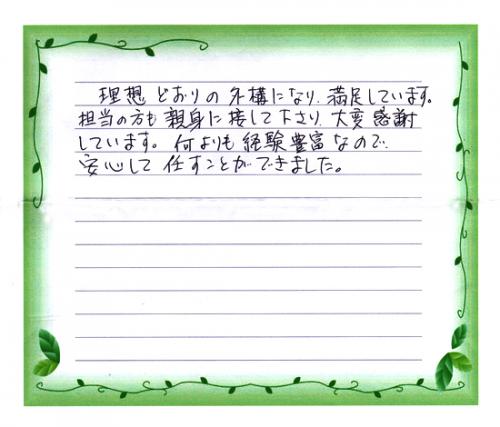 理想どおりの外構になり、満足しています。
担当の方も親身に接して下さり、大変感謝
しています。何よりも経験豊富なので、
安心して任すことができました。